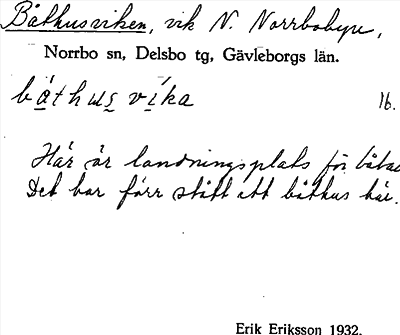 Båthusviken, vik N. Norrbobyn,
Norrbo sn, Delsbo tg, Gävleborgs län.
båthusvika 16.
Här är landningsplats för båtar
Det har förr stått ett båthus här.
Erik Eriksson 1932.